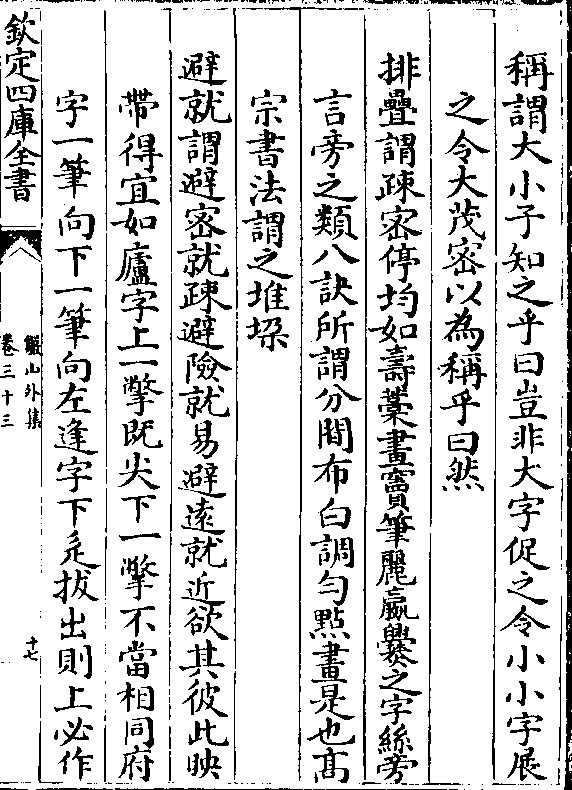 稱謂大小子知之乎曰豈非大字促之令小小字展
之令大茂密以為稱乎曰然
排疊謂疎密停均如壽藁畫竇筆麗羸爨之字絲旁
言旁之類八訣所謂分間布白調勻點畫是也高
宗書法謂之堆垜
避就謂避密就疎避險就易避遠就近欲其彼此映
帶得宜如廬字上一撆既尖下一撆不當相同府
字一筆向下一筆向左逢字下辵拔出則上必作
欽定四庫全書
山外集
卷三十三
十七